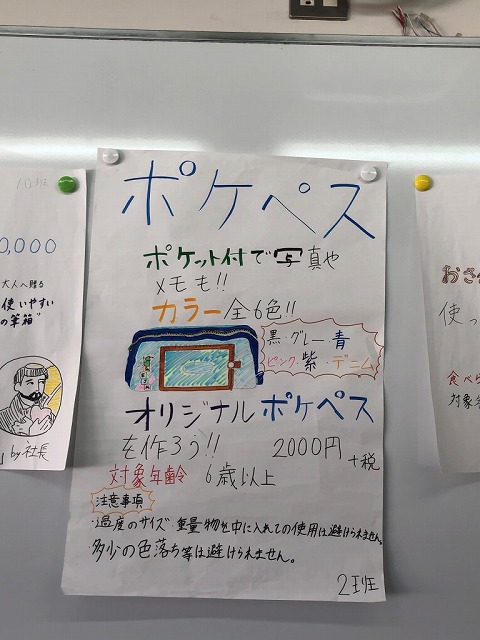 ポケペス
ポケット付で写真や
メモも!!
カラー全6色!!
黒・グレー・青
ピンク・紫・デニム
オリジナルポケペス
を作ろう!!
2000円
+税
対象年齢 6歳以上
注意事項
・過度のサイズ・重量物を中に入れての使用は避けられません。
多少の色落ち等は避けられません。
2班
10班
0,000
大人へ贈る
使いやすい
の筆箱"
」by社長
おさ
使っ
食べら
対象年